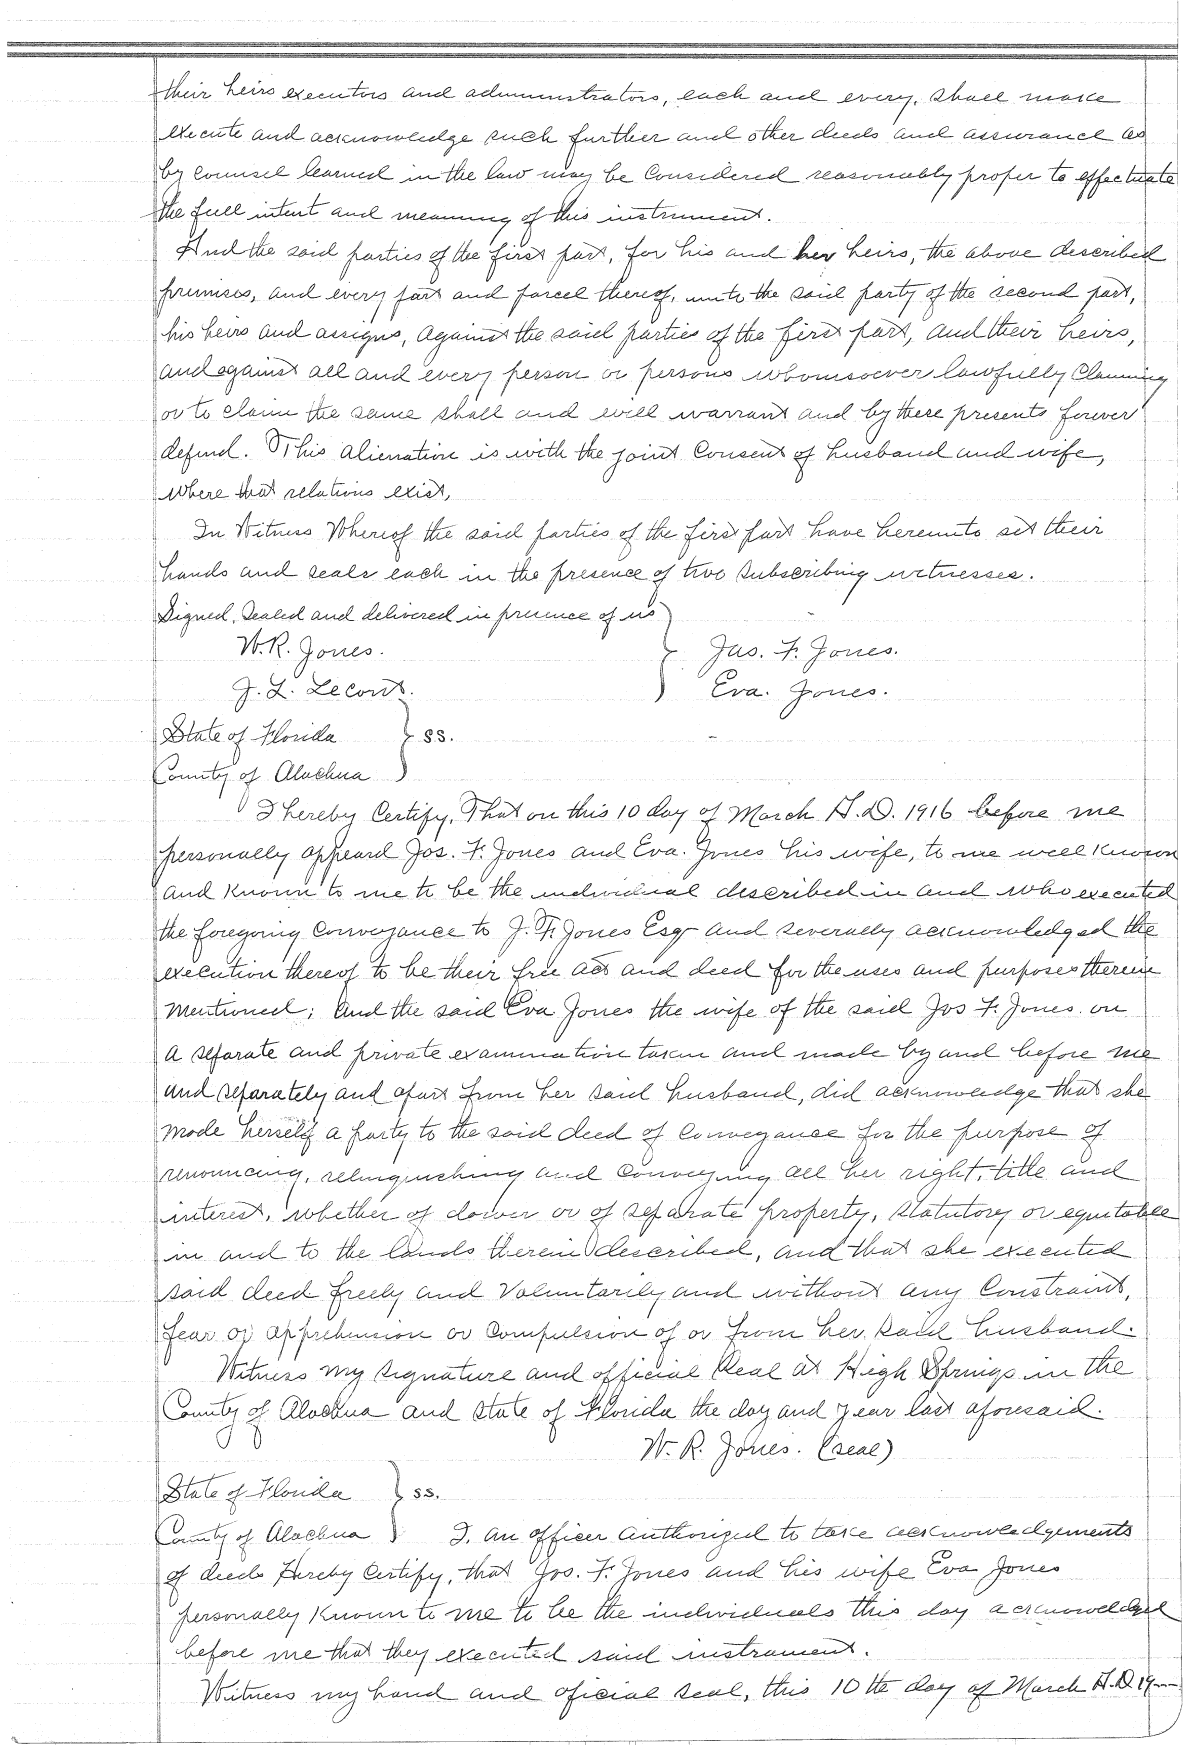 their heirs executors and administrators, each and every, shall make
execute and acknowledge such further and other deeds and assurance as
by counsel learned in the law may be Considered reasonably proper to effectuate
the full intent and meaning of this instrument.
And the said parties of the first part, for his and her heirs, the above described
premises, and every part and parcel thereof, unto the said party of the second part,
his heirs and assigns, against the said parties of the first part, and their heirs,
and against all and every person or persons whomsoever lawfully Claiming
or to claim the same shall and will warrant and by these presents forever
defend. This alienation is with the joint Consent of husband and wife,
where that relations exist,
In Witness Whereof the said parties of the first part have hereunto set their
hands and seals each in the presence of two subscribing witnesses.
Signed, Sealed and delivered in presence of us )
W. R. Jones. } Jas. F. Jones.
J. L. Lecont. ) Eva. Jones.
State of Florida } ss.
County of Alachua )
I hereby Certify, That on this 10 day of March A.D. 1916 before me
personally appeard Jos. F. Jones and Eva. Jones his wife, to me well known
and known to me to be the individual described in and who executed
the foregoing Conveyance to J. F. Jones Esqr and severally acknowledged the
execution thereof to be their free act and deed for the uses and purposes therein
mentioned; and the said Eva Jones the wife of the said Jos F. Jones. on
a separate and private examination taken and made by and before me
and separately and apart from her said husband, did acknowledge that she
made herself a party to the said deed of Conveyance for the purpose of
renouncing, relinquishing and Conveying all her right, title and
interest, whether of dower or of separate property, statutory or equitable
in and to the lands therein described, and that she executed
said deed freely and Voluntarily and without any Constraint,
fear or apprehension or Compulsion of or from her said husband.
Witness my signature and official Seal at High Springs in the
County of Alachua and State of Florida the day and year last aforesaid.
W. R. Jones. (seal)
State of Florida } ss.
County of Alachua } I, an officer authorized to take acknowledgements
of deeds Hereby Certify, that Jos. F. Jones and his wife Eva Jones
personally Known to me to be the individuals this day acknowledged
before me that they executed said instrument.
Witness my hand and oficial seal, this 10 th day of March A.D. 19---